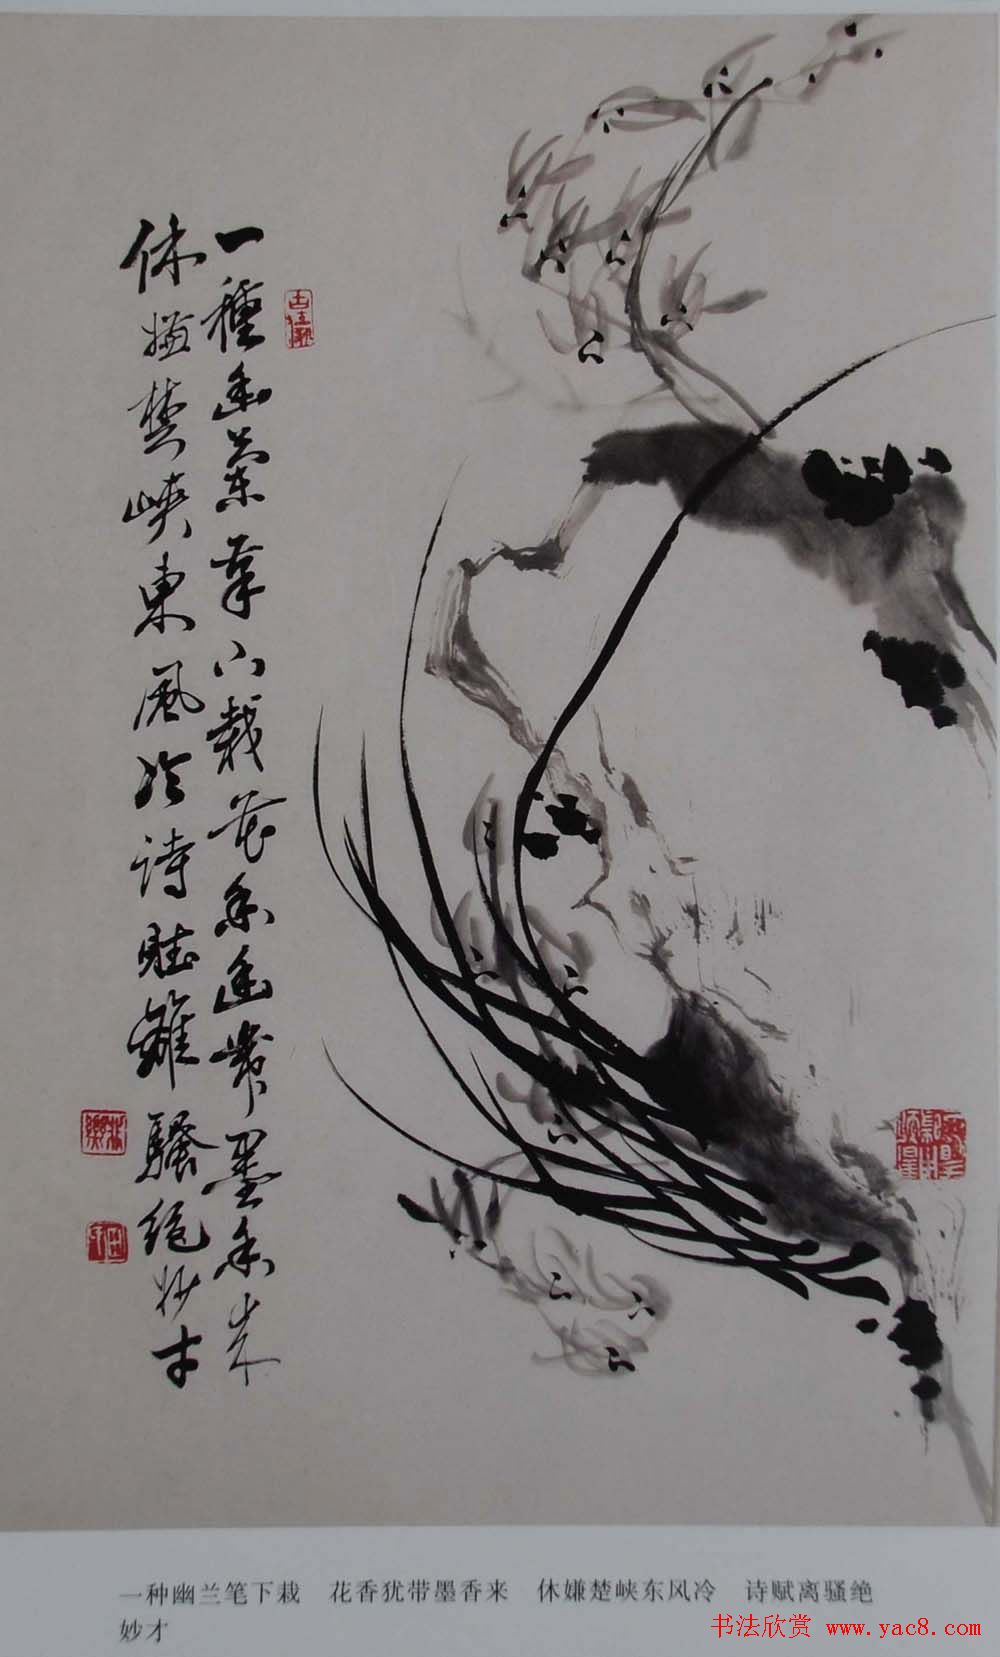 一種幽蘭筆下栽花香猶帶墨香來
休嫌楚峽東風冷詩賦離騷絕妙才
一种幽兰笔下栽　花香犹带墨香来　休嫌楚峡东风冷　诗赋离骚绝
妙才
书法欣赏 www.yac8.com